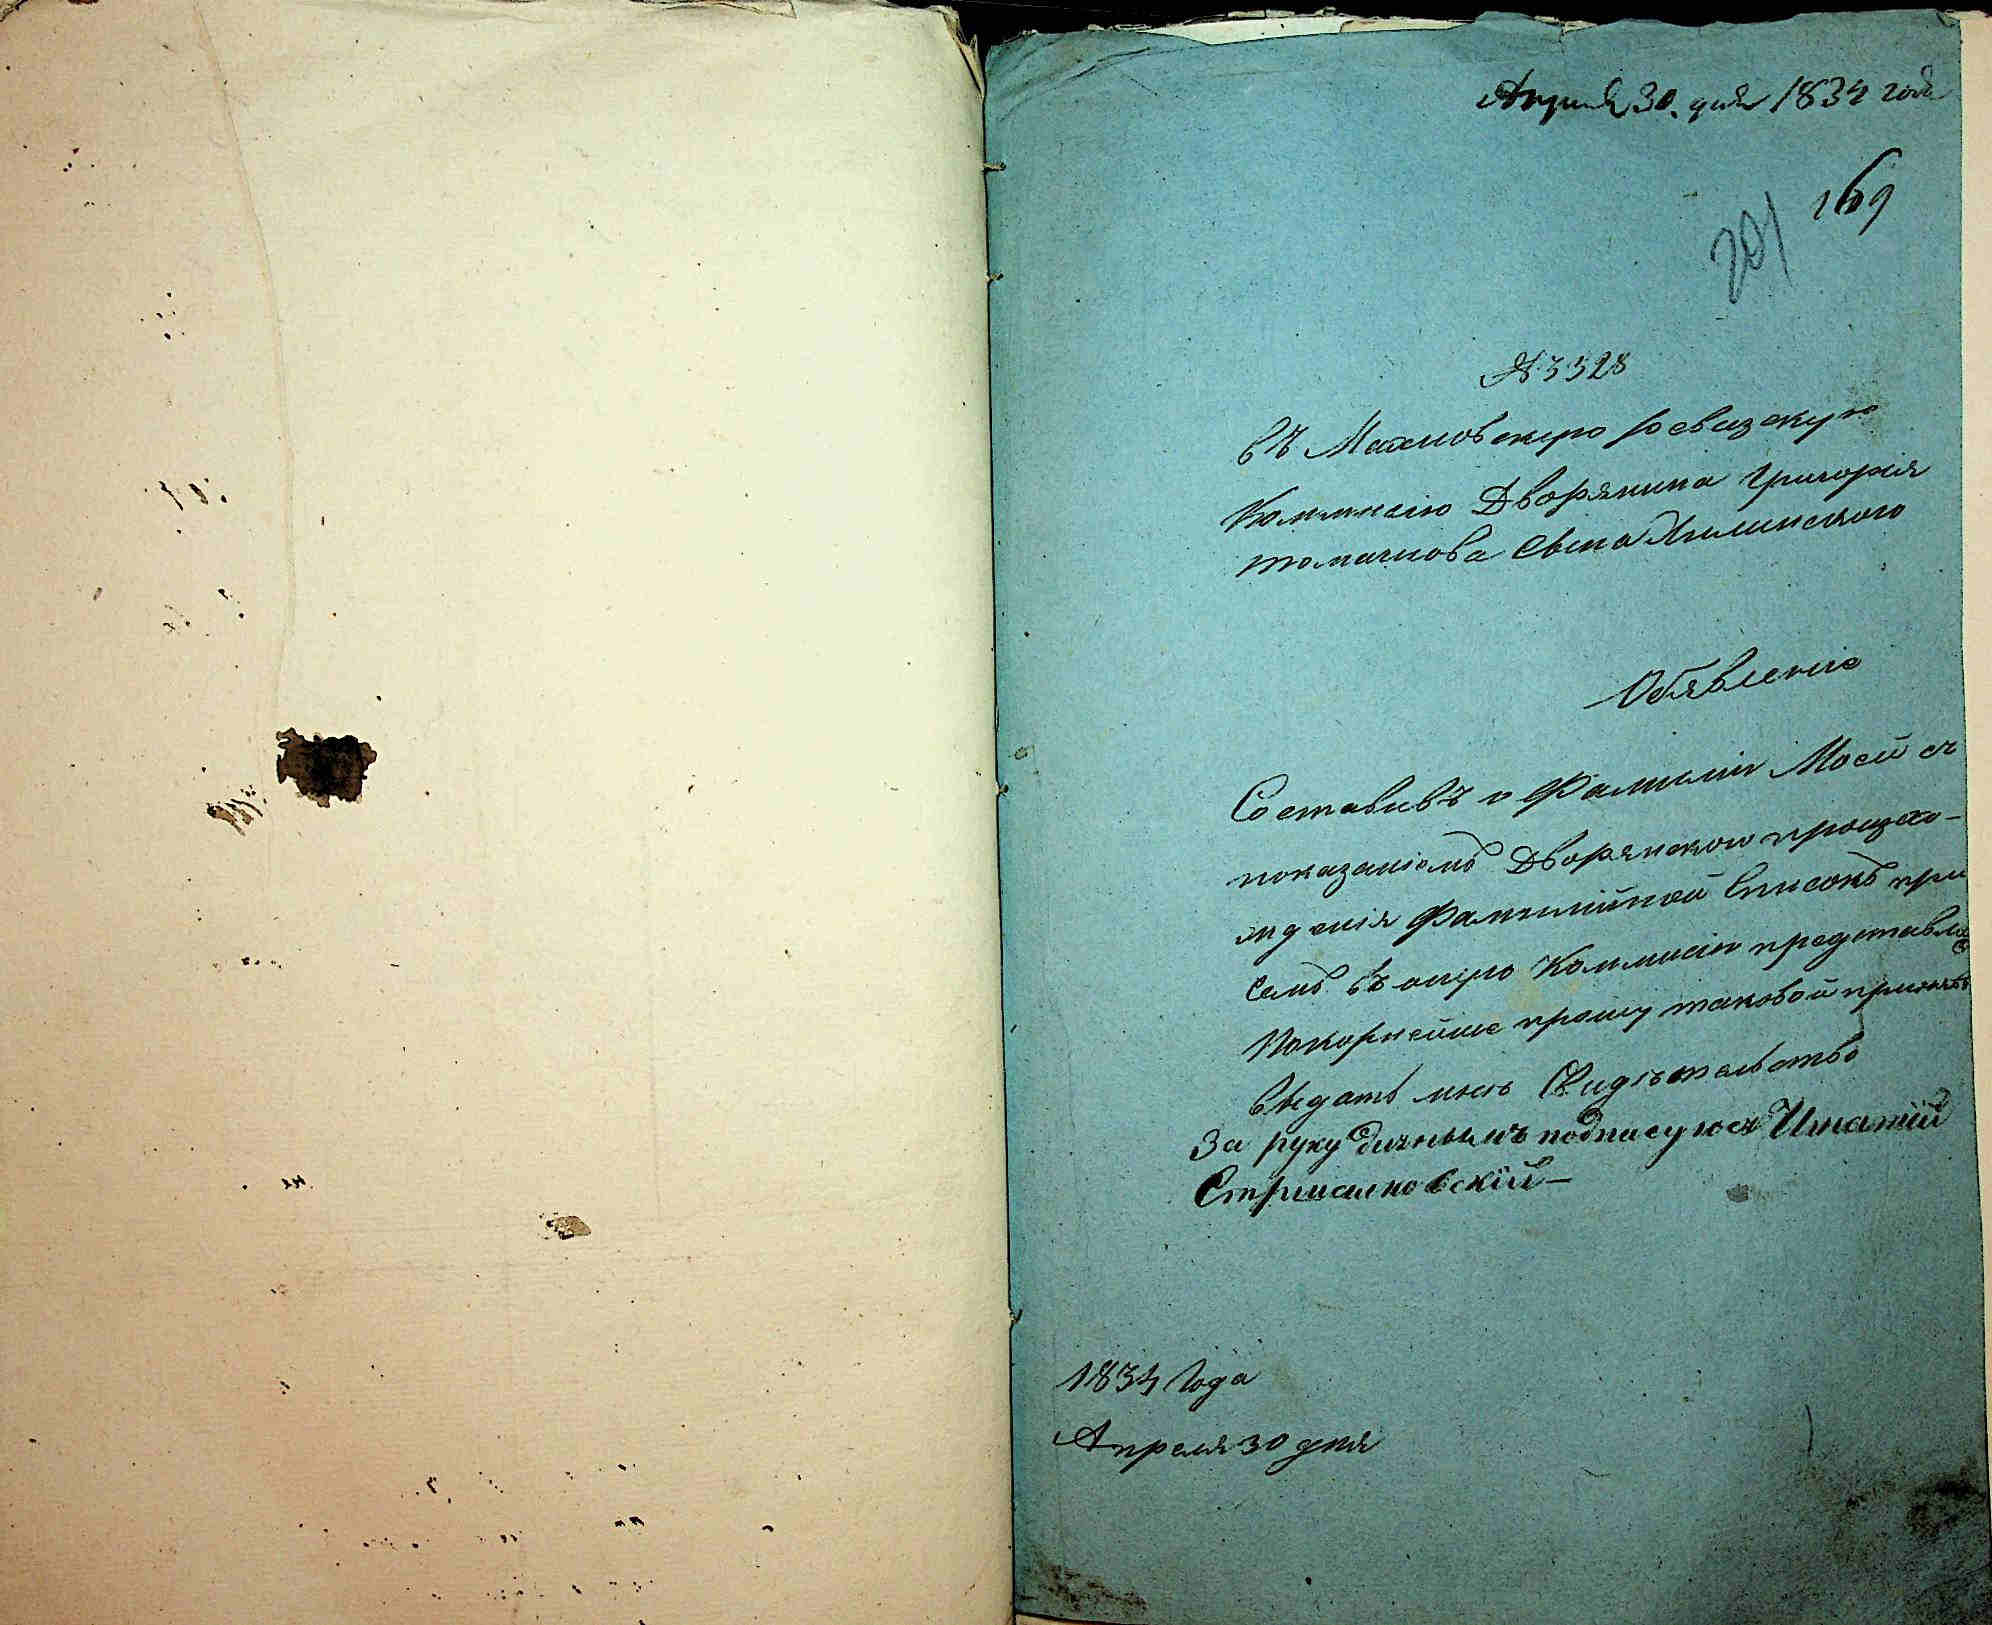 Апреля 30. дня 1834 года
169
201
№ 3328
Въ Махновскую Ревизскую
Коммисию Дворянина Григорія
сына Яилинского
Объявленіе
Составивъ о Фамиліи Моей съ
показаніемъ Дворянского происхо-
жденія Фамилійной Списокъ при
семъ въ оную Коммисію представляя
Покорнейше прошу таковой принявъ
выдать мнѣ Свидѣтельство
За руку дичнымъ подписуюсь Игнатій
1834 Года
Апреля 30 дня